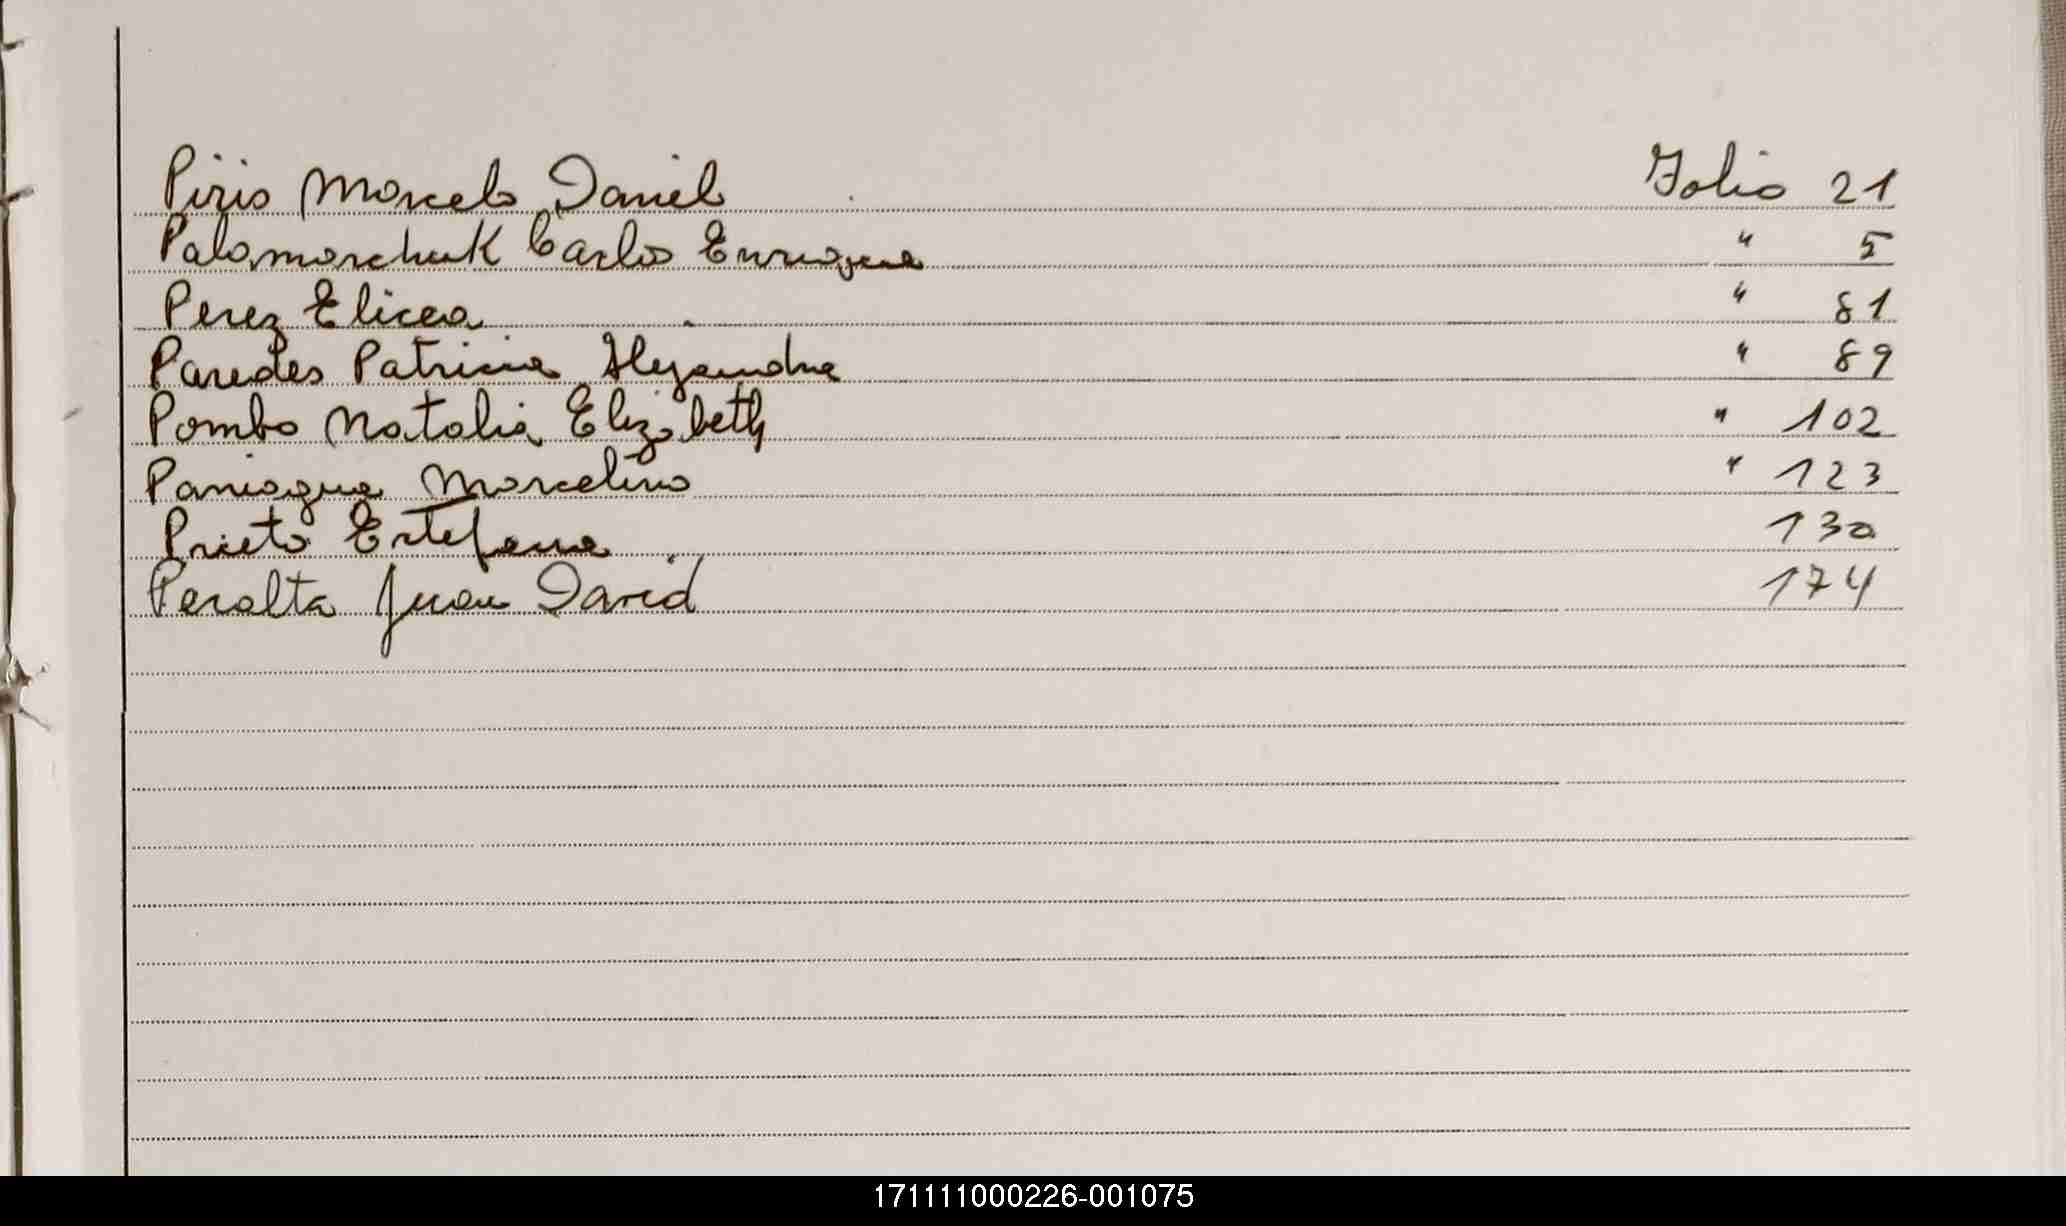 Piris Marcelo Daniel Folio 21
Palamarchuk Carlos Enrique " 5
Perez Elicea " 81
Paredes Patricia Alejandra " 89
Pombo Natalia Elizabeth " 102
Paniagua Marcelino " 123
Prieto Estefana 130
Peralta Juan David 174
171111000226-001075